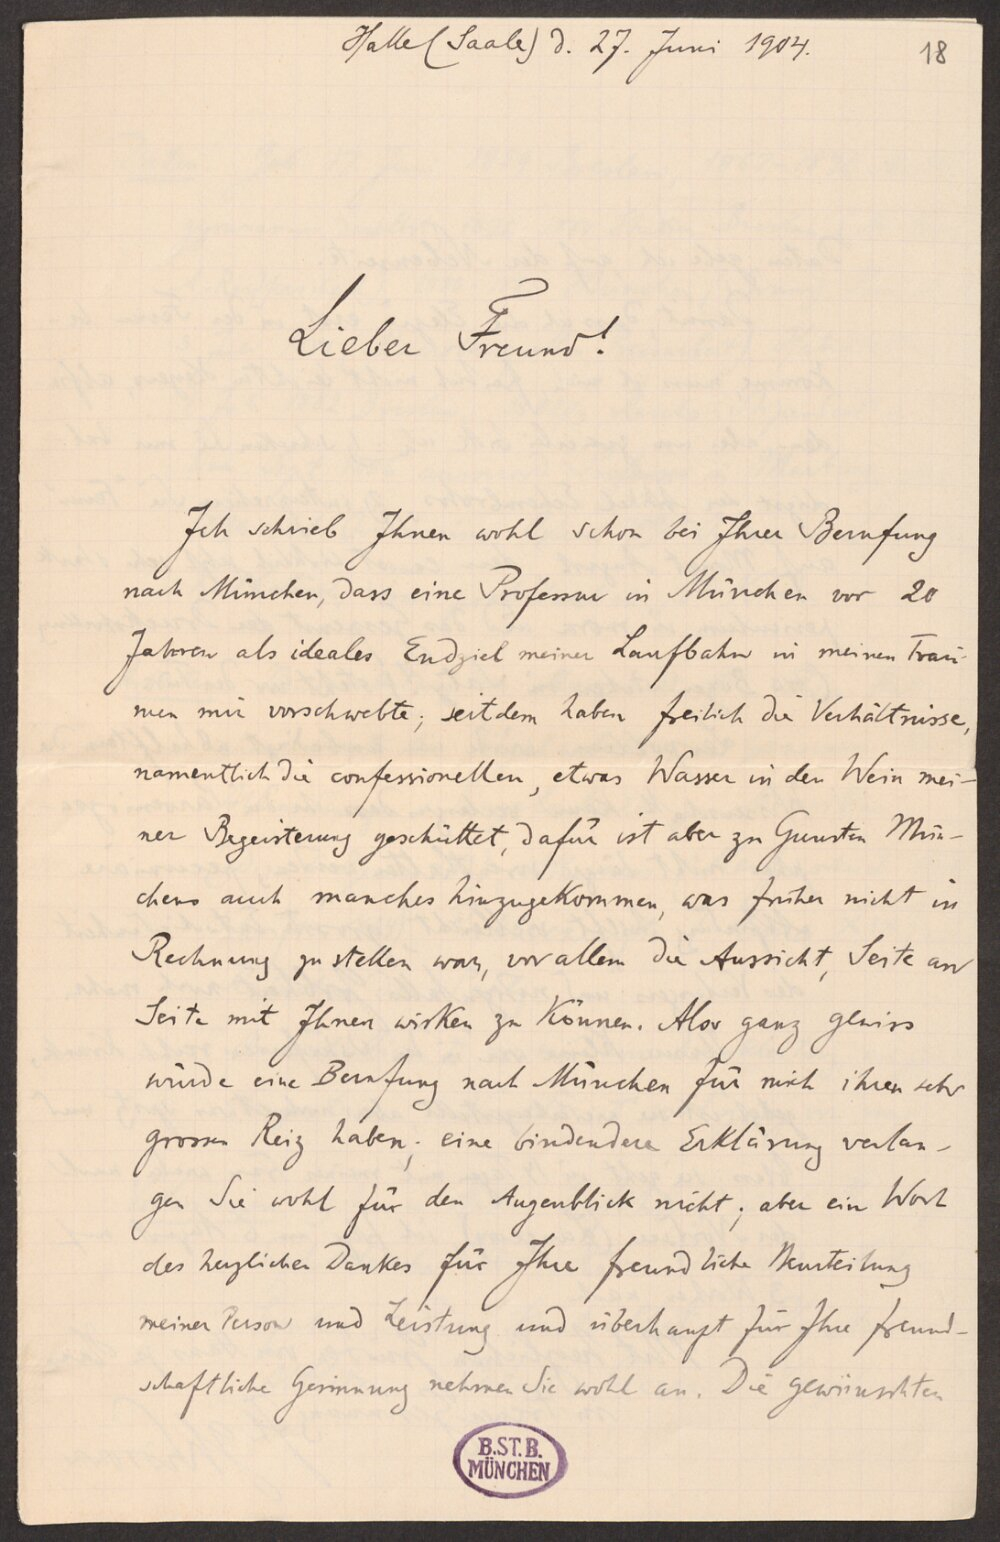 Halle (Saale) d. 27. Juni 1904.
18
Lieber Freund!
Ich schrieb Ihnen wohl schon bei Ihrer Berufung
nach München, dass eine Professur in München vor 20
Jahren als ideales Endziel meiner Laufbahn in meinen Träu-
men mir vorschwebte; seitdem haben freilich die Verhältnisse,
namentlich die confessionellen, etwas Wasser in den Wein mei-
ner Begeisterung geschüttet, dafür ist aber zu Gunsten Mün-
chens auch manches hinzugekommen, was früher nicht in
Rechnung zu stellen war, vor allem die Aussicht, Seite an
Seite mit Ihnen wirken zu können. Also ganz gewiss
würde eine Berufung nach München für mich ihren sehr
grossen Reiz haben; eine bindendere Erklärung verlan-
gen Sie wohl für den Augenblick nicht; aber ein Wort
des herzlichen Dankes für Ihre freundliche Beurteilung
meiner Person und Leistung und überhaupt für Ihre freund-
schaftliche Gesinnung nehmen Sie wohl an. Die gewünschten
B.ST.B.
MÜNCHEN